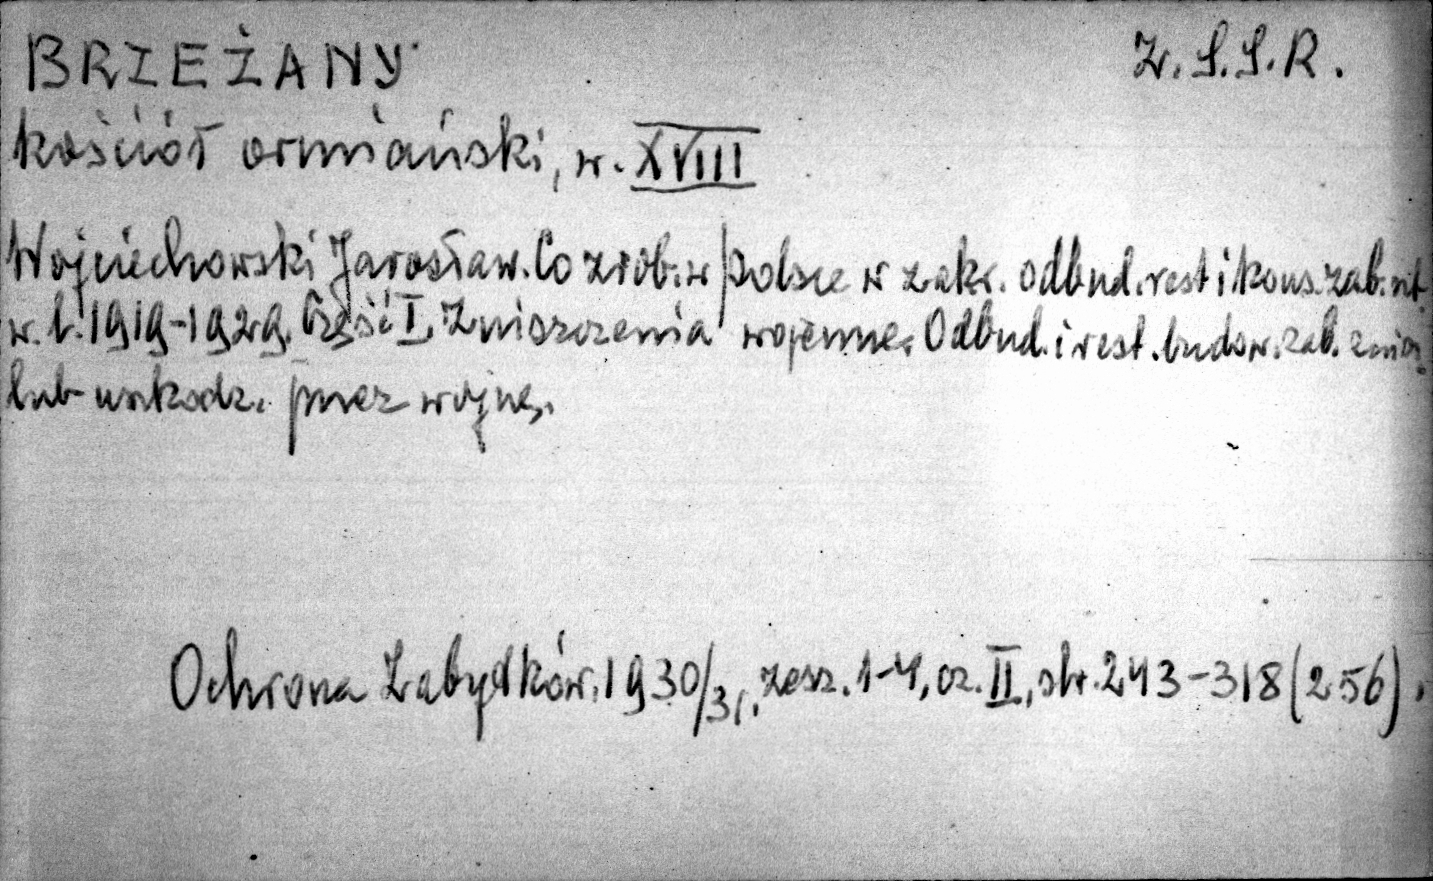 BRZEŻANY Z.S.S.R.
kościół ormiański, w. XVIII
Wojciechowski Jarosław. Co zrob. w Polsce w zakr. odbud. rest i kons. zab. szt.
w l. 1919-1929. Część I. Zniszczenia wojenne. Odbud. i rest. budow. zab. znisz.
lub uszkodz. przez wojnę.
Ochrona Zabytków. 1930/31, zesz. 1-4, cz. II, str. 243-318 (256).